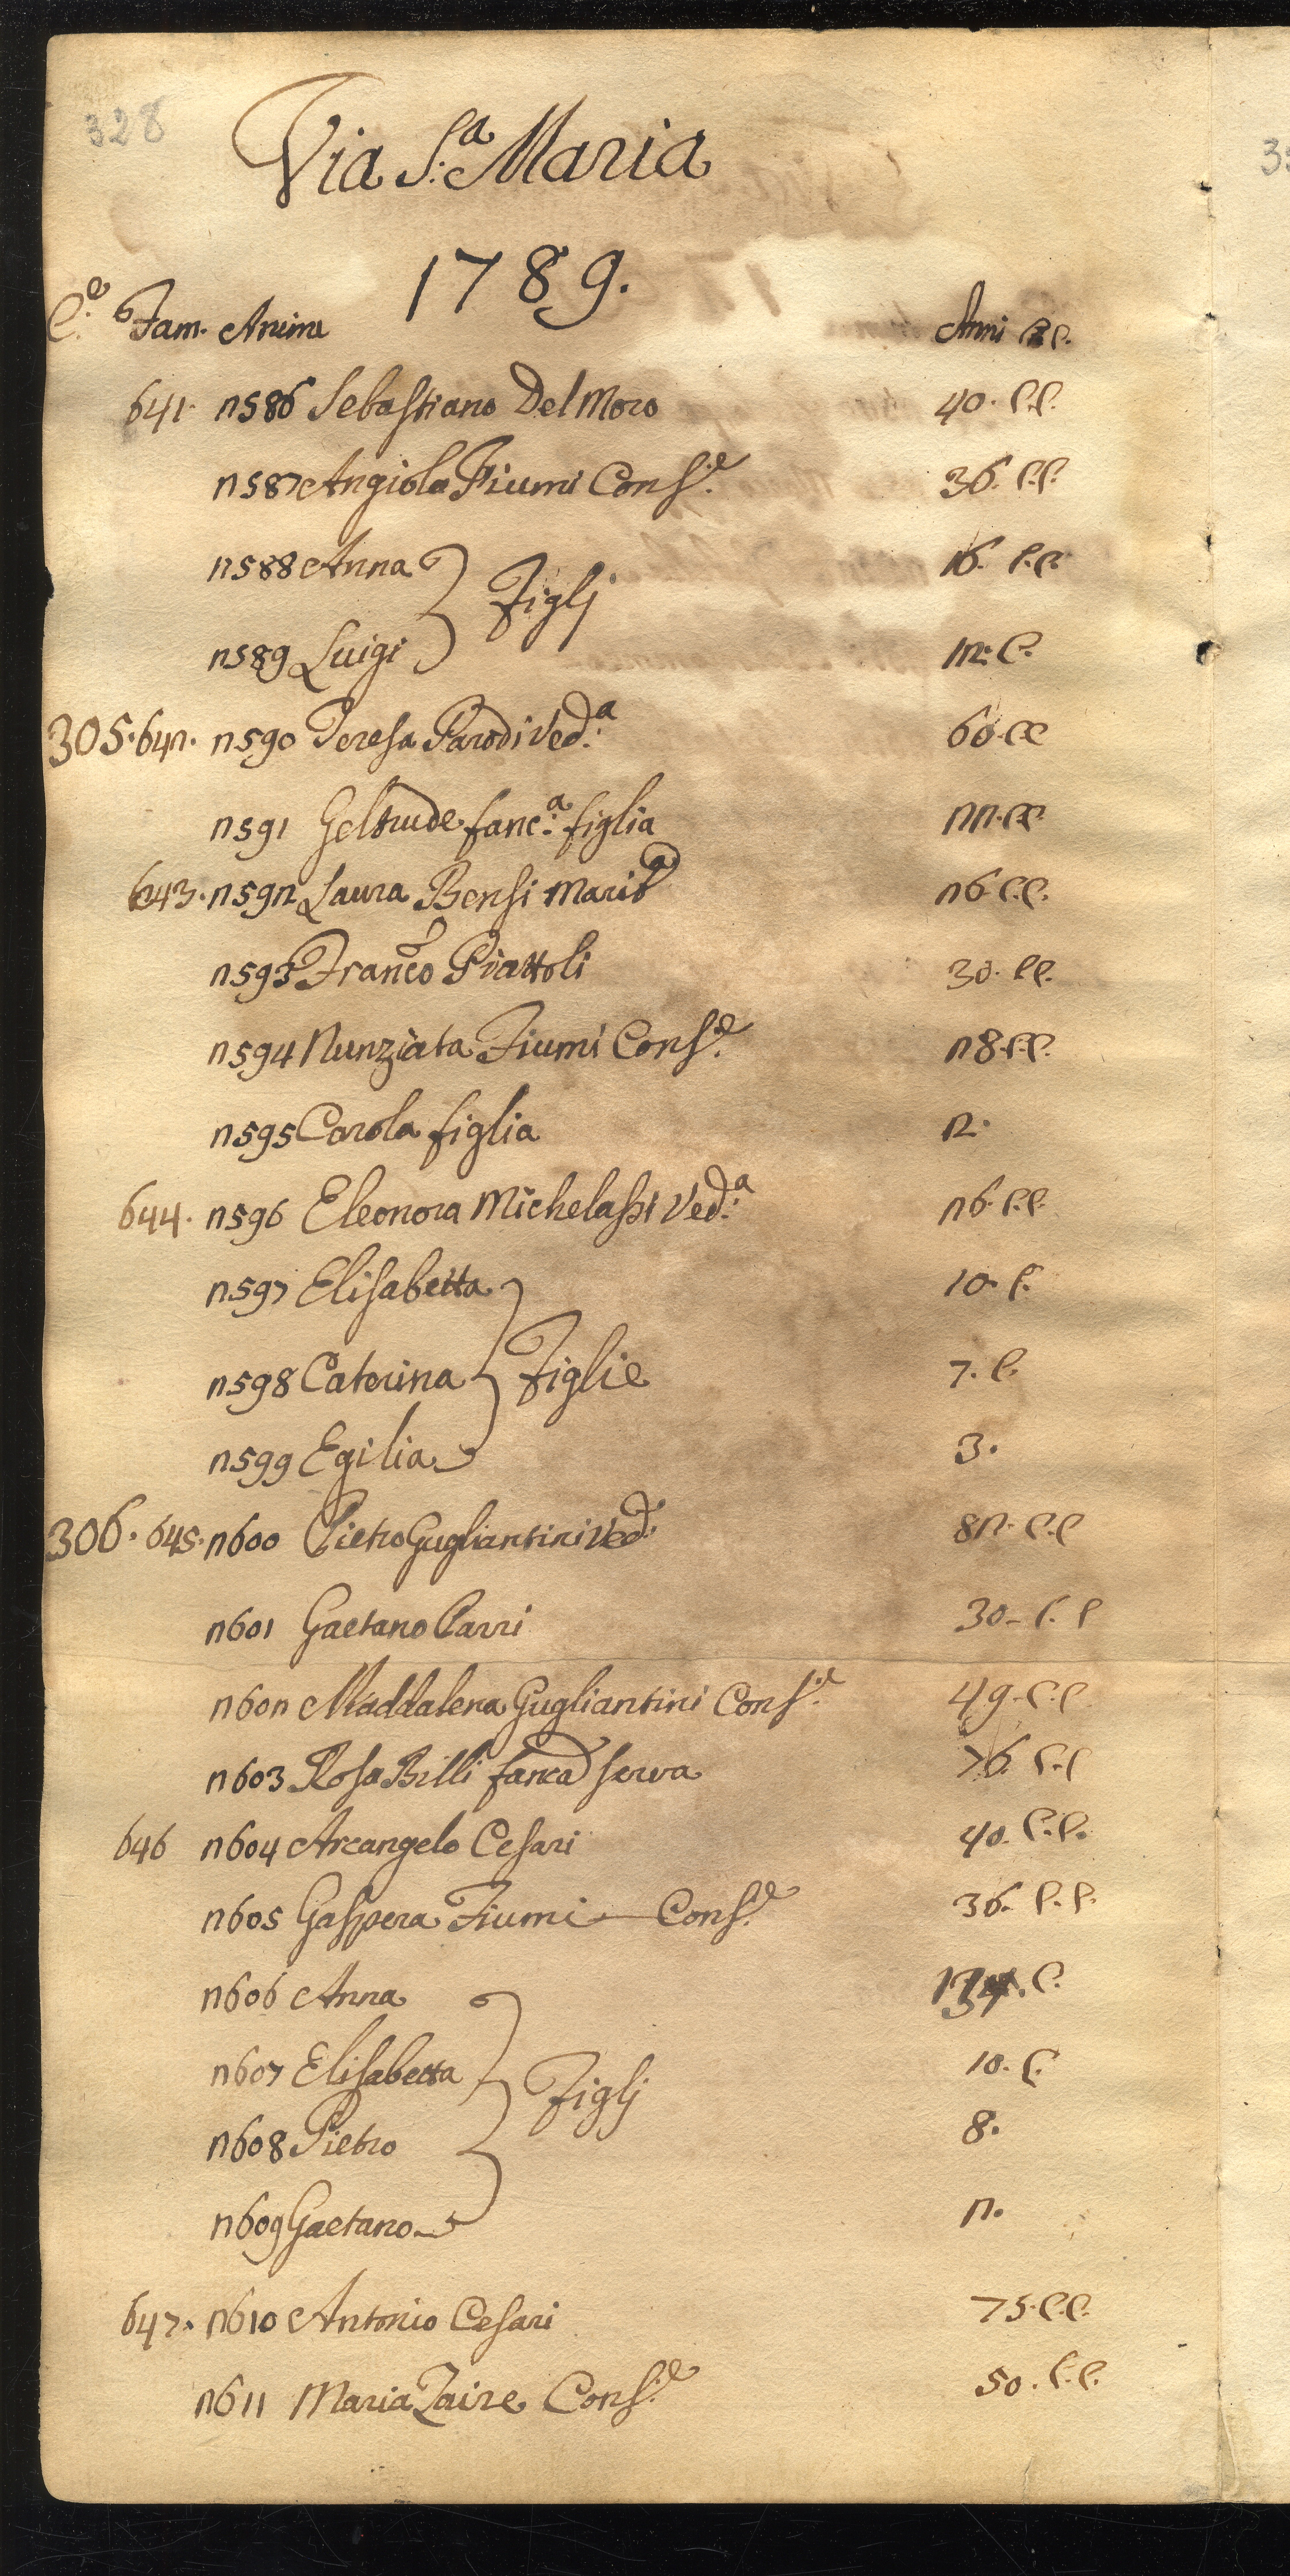 328
Via S.a Maria
1789.
C.e Fam. Anime Anni C.C.
641. 2586 Sebastiano Del Moro 40. C.C.
2587 Angiola Fiumi Cons.e 36. C.C.
2588 Anna 16. C.C.
Figlj
2589 Luigi 12. C.
305. 642. 2590 Teresa Parodi Ved.a 60. CC
2591 Geltrude fanc.a figlia 22. CC.
643. 2592 Laura Bensi Marit.a 26 C.C.
2593 Franco Piattoli 30. CC.
2594 Nunziata Fiumi Cons.e 28. C.C.
2595 Carola figlia 2.
644. 2596 Eleonora Michelassi Ved.a 26. C.C.
2597 Elisabetta 10. C.
2598 Caterina Figlie 7. C.
2599 Egilia 3.
306. 645. 2600 Pietro Gugliantini Ved.o 82. C.C
2601 Gaetano Carri 30. C. C
2602 Maddalena Gugliantini Cons.e 49. C.C
2603 Rosa Billi fanca serva 76. C.C
646 2604 Arcangelo Cesari 40. C.C.
2605 Gaspera Fiumi Cons.e 36. C.C.
2606 Anna C.
2607 Elisabetta 10. C.
Figlj
2608 Pietro 8.
2609 Gaetano 2.
647. 2610 Antonio Cesari 75. C.C.
2611 Maria Zaire Cons.e 50. C.C.